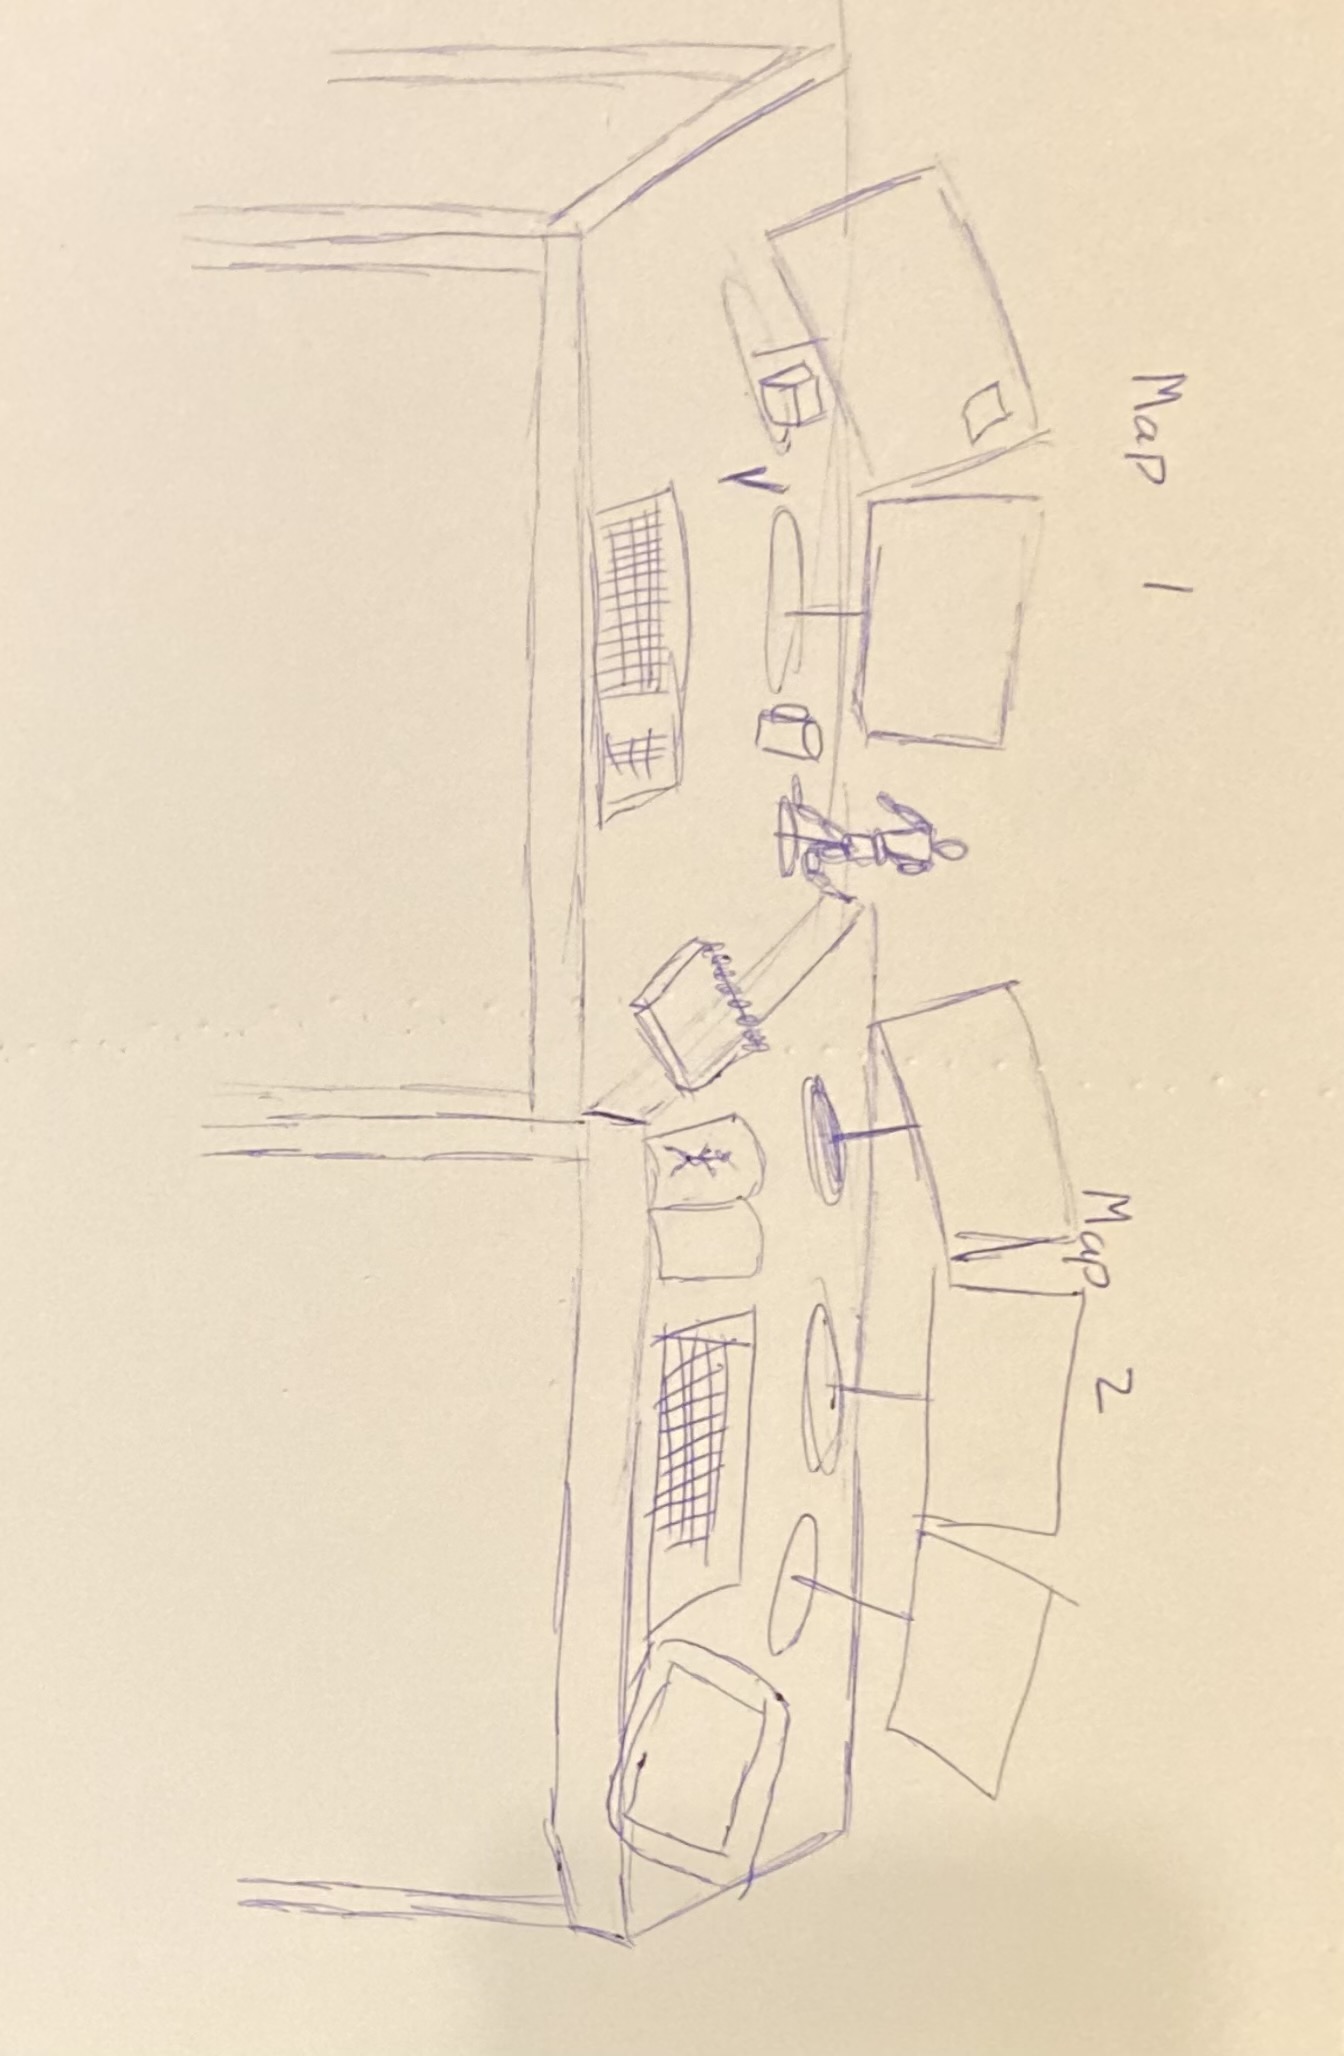 Map 1
Map 2